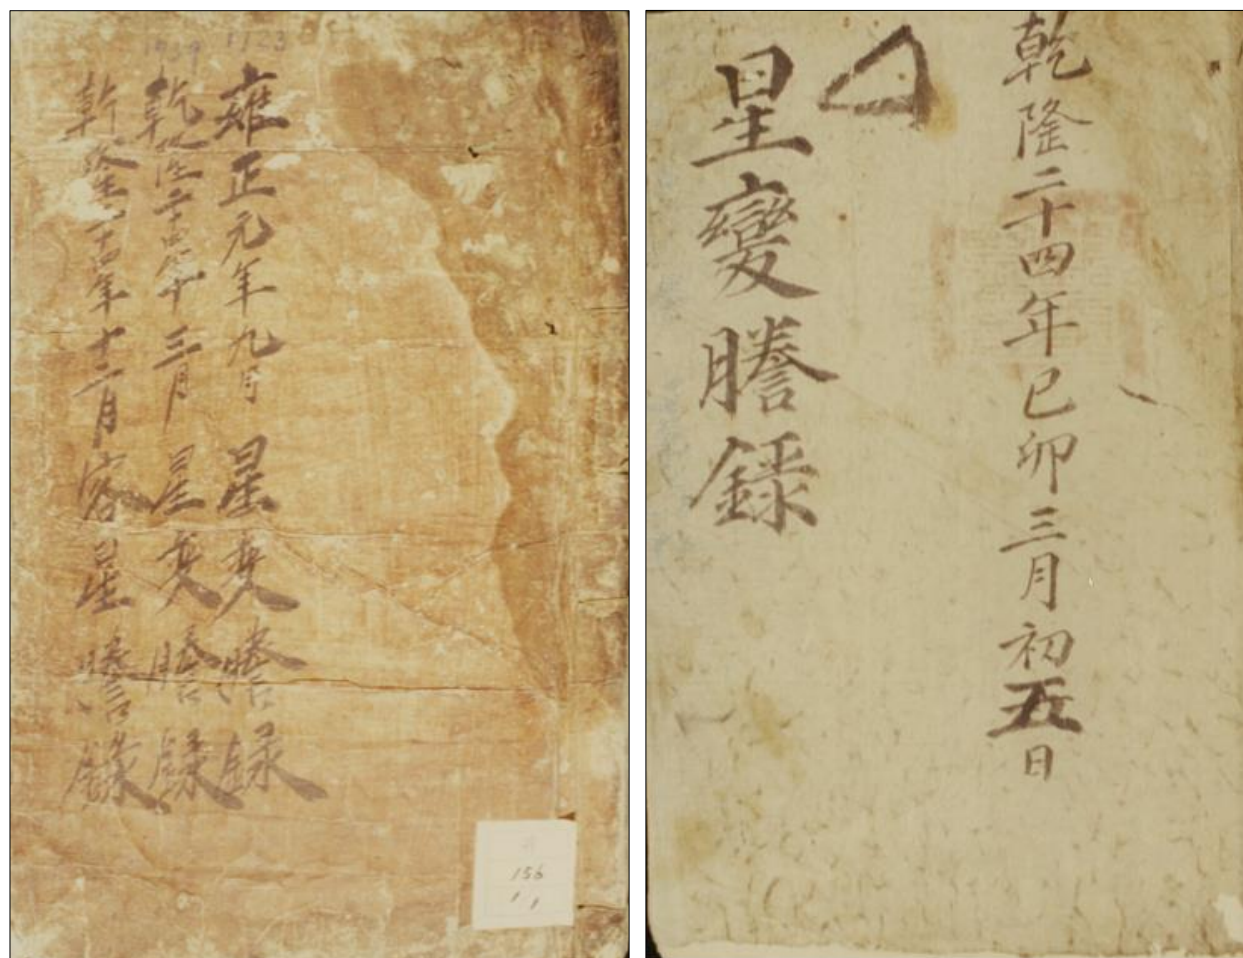 1723
雍正元年九月 星变謄録
乾隆二十四年三月 星变謄録
乾隆二十四年十二月 客星謄録
156
1 1
乾隆二十四年己卯三月初五日
星變謄錄